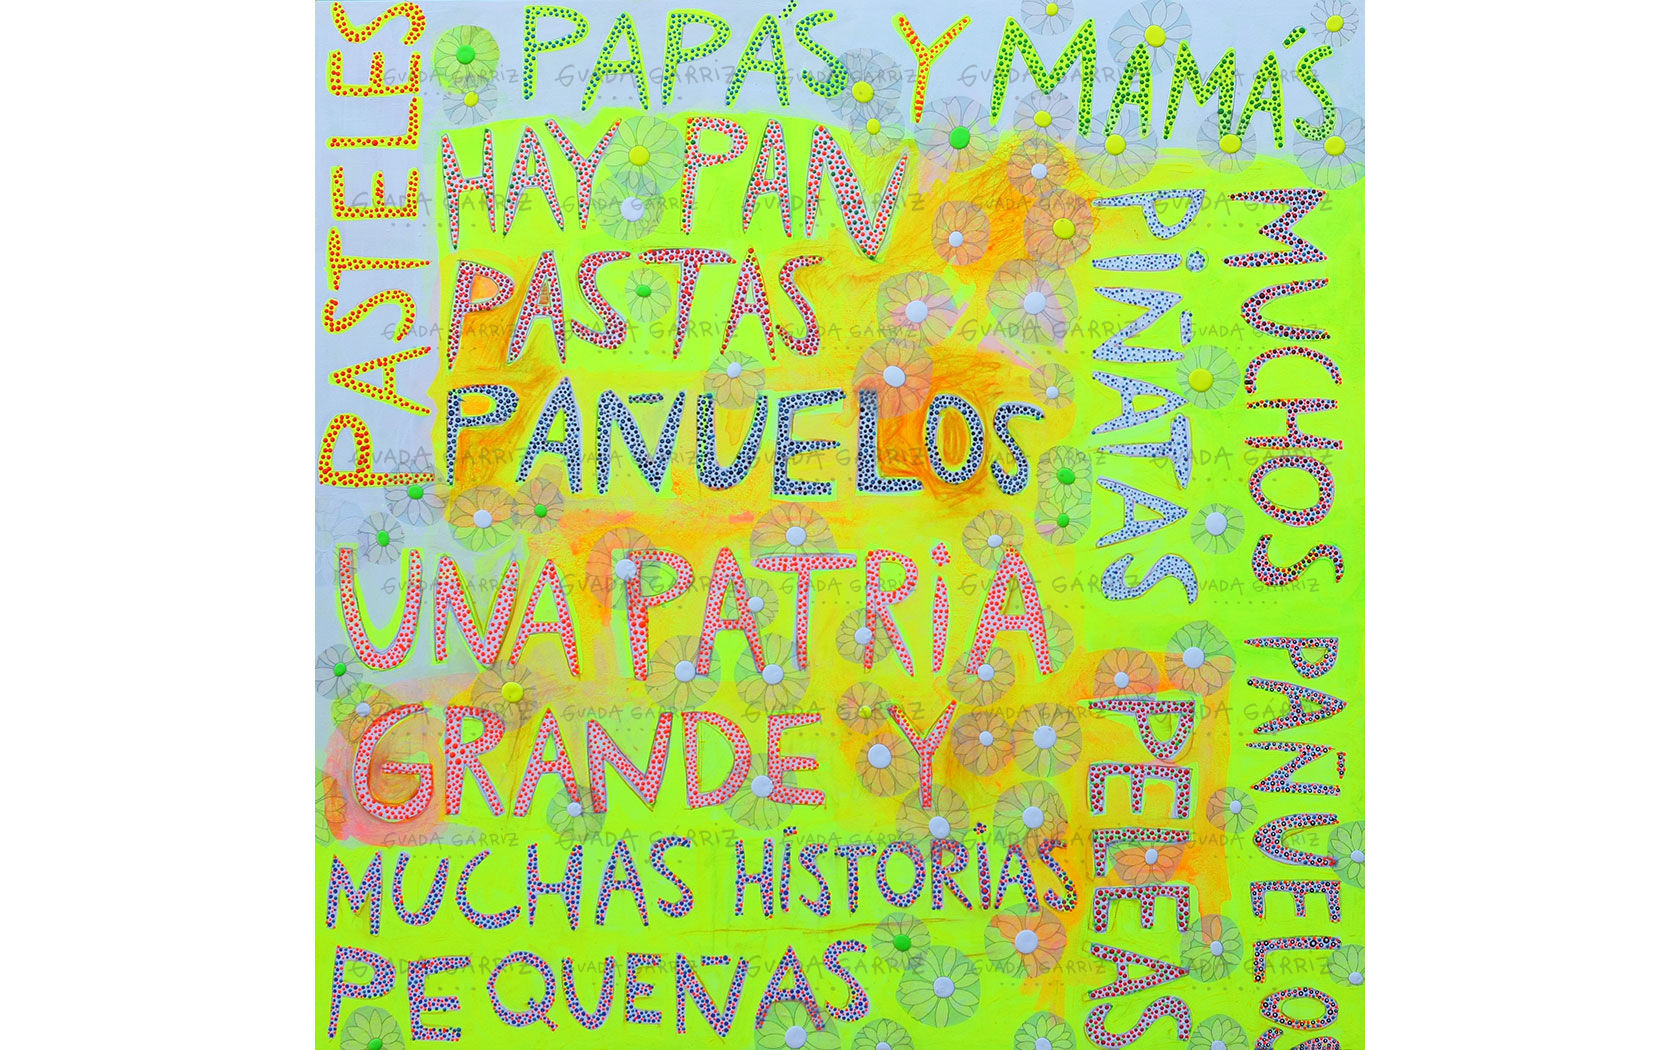 PASTELES
PAPÁS Y MAMÁS
HAY PAN
PASTAS
PAÑUELOS
UNA PATRIA
GRANDE Y
MUCHAS HISTORIAS
PEQUEÑAS
PIÑATAS
PELEAS
MUCHOS PAÑUELOS
GUADA GÁRRIZ